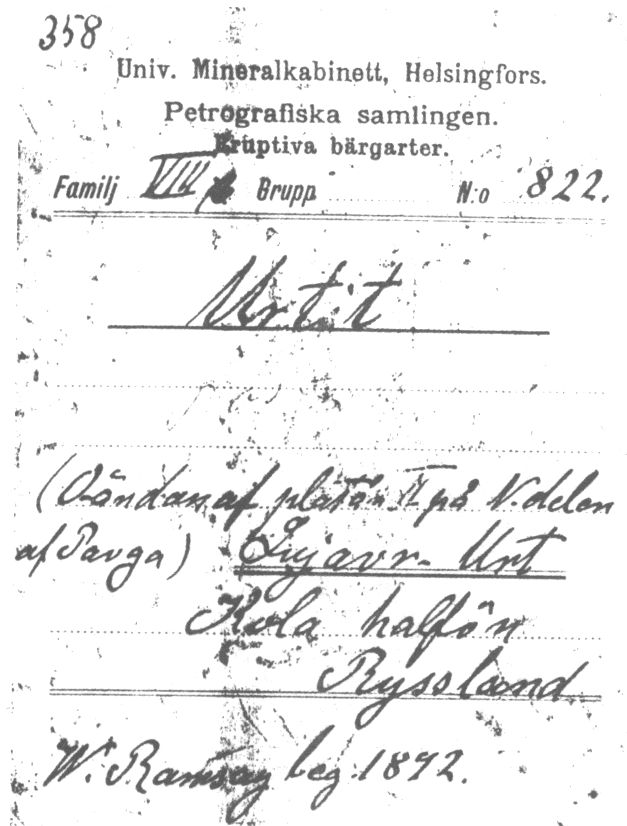 358
Univ. Mineralkabinett, Helsingfors.
Petrografiska samlingen.
Eruptiva bärgarter.
Familj VIII Grupp N:o 822.
Urtit
(O-ändan af platån II på N. delen
af Parga) Lujavr-Urt
Kola halfön
Ryssland
W. Ramsay leg. 1892.